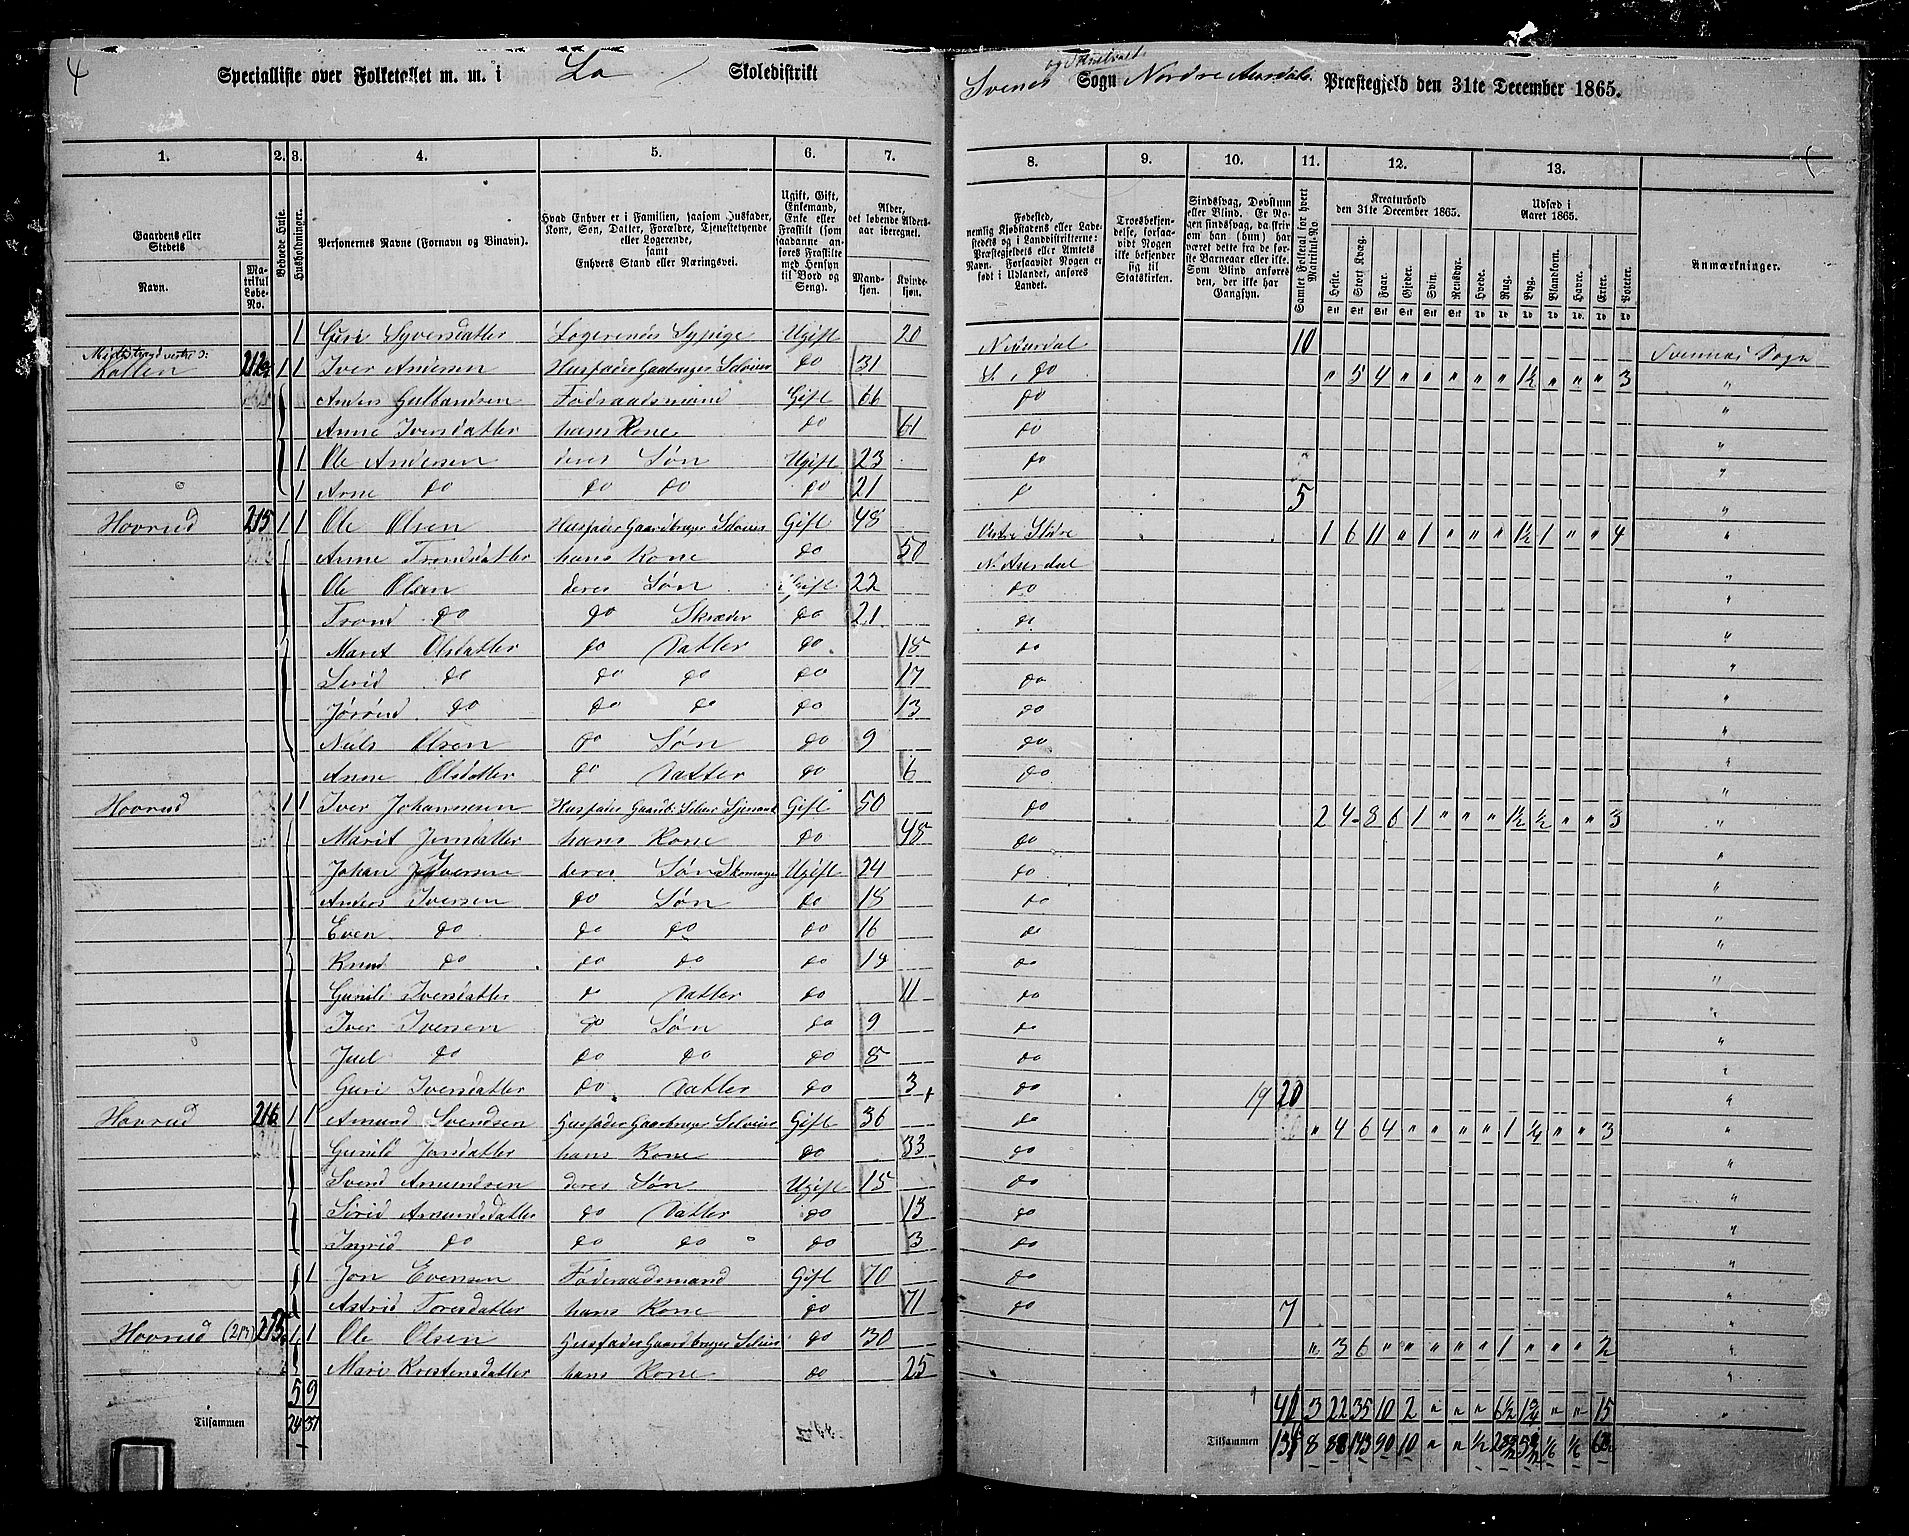 4
Specialliste over Folketallet m. m. i Lo Skoledistrikt
Svenes og Sogn Nordre Aurdals Præstegjeld den 31te December 1865.
1. 2. 3. 4. 5. 6. 7. 8. 9. 10. 11. 12. 13.
Gaardens eller Stedets
Navn.
Matrikul Løbe-No.
Bebøede Huse.
Husholdninger.
Personernes Navne (Fornavn og Binavn).
Hvad Enhver er i Familien, saasom Husfader, Kone, Søn, Datter, Forældre, Tjenestetyende eller Logerende, samt Enhvers Stand eller Næringsvei.
Ugift, Gift, Enkemand, Enke eller Fraskilt (som saadanne anføres Fraskilte med Hensyn til Bord og Seng).
Alder, det løbende Aldersaar iberegnet.
Mandkjøn. Kvindekjøn.
Fødested, nemlig Kjøbstadens eller Ladestedets og i Landdistrikterne: Præstegjeldets eller Amtets Navn. Forsaavidt Nogen er født i Udlandet, anføres Landet.
Troesbekjendelse, forsaavidt Nogen ikke bekjender sig til Statskirken.
Sindssvag, Døvstum eller Blind. Er Nogen sindssvag, da skrives om han (hun) har været dette fra de første Barneaar eller ikke. Som Blind anføres den, der ikke har Gangsyn.
Samlet Folketal for hvert Matrikul-No.
Kreaturhold den 31te December 1865.
Heste. Stort Kvæg. Faar. Gjeder. Svin. Rensdyr.
Udsæd i Aaret 1865.
Hvede. Rug. Byg. Blandkorn. Havre. Erter. Poteter.
Anmærkninger.
1 Guri Syversdatter Logerende Sypige Ugift 20 N. Aurdal 10 Svennes Sogn
Kolten 212 1 1 Iver Andersen Husfader Gaardbruger Selveier do 31 do " 5 4 " " " " " 1½ " " " 3 "
Anders Gulbrandsen Føderaadsmand Gift 66 do "
Anne Iversdatter hans Kone do 61 do "
1 Ole Andersen deres Søn Ugift 23 do "
1 Arne do do do do 21 do 5 "
Hovrud 215 1 1 Ole Olsen Husfader Gaardbruger Selveier Gift 48 Vestre Slidre 1 6 11 " 1 " " " 1½ 1 " " 4 "
Anne Trondsdatter hans Kone do 50 N. Aurdal "
Ole Olsen deres Søn Ugift 22 do "
Trond do do Skræder do 21 do "
Marit Olsdatter do Datter do 18 do "
Sirid do do do do 17 do "
Jørønd do do do do 13 do "
Niels Olsen do Søn do 9 do "
Anne Olsdatter do Datter do 6 do "
Hovrud 1 1 Iver Johannesen Husfader Gaardb. Selveier Gift 50 do 2 4 8 6 1 " " " 1½ ½ " " 3 "
Marit Jonsdatter hans Kone do 48 do "
Johan Iversen deres Søn Skomager Ugift 24 do "
Anders Iversen do Søn do 18 do "
Even do do do do 16 do "
Knud do do do do 14 do "
Gunild Iversdatter do Datter do 11 do "
Iver Iversen do Søn do 9 do "
Juel do do do do 8 do "
Guri Iversdatter do Datter do 3 do 19 20 "
Hovrud 216 1 1 Amund Svendsen Husfader Gaardbruger Selveier Gift 36 do " 4 6 4 " " " " 1 ¼ " " 3 "
Gunild Jonsdatter hans Kone do 33 do "
Svend Amundsen deres Søn Ugift 15 do "
Sirid Amundsdatter do Datter do 13 do "
Ingrid do do do do 3 do "
1 Jon Evensen Føderaadsmand Gift 70 do "
Astrid Toresdatter hans Kone do 71 do 7 "
Hovrud (213) 1 1 Ole Olsen Husfader Gaardbruger Selveier do 30 " 3 6 " " " " " 1 " " " 2 "
Mari Kristensdatter hans Kone do 25 "
5 9
Tilsammen 24 37
3 22 35 10 2 " " " " " 15 "
Tilsammen 8 90 10 " " ½